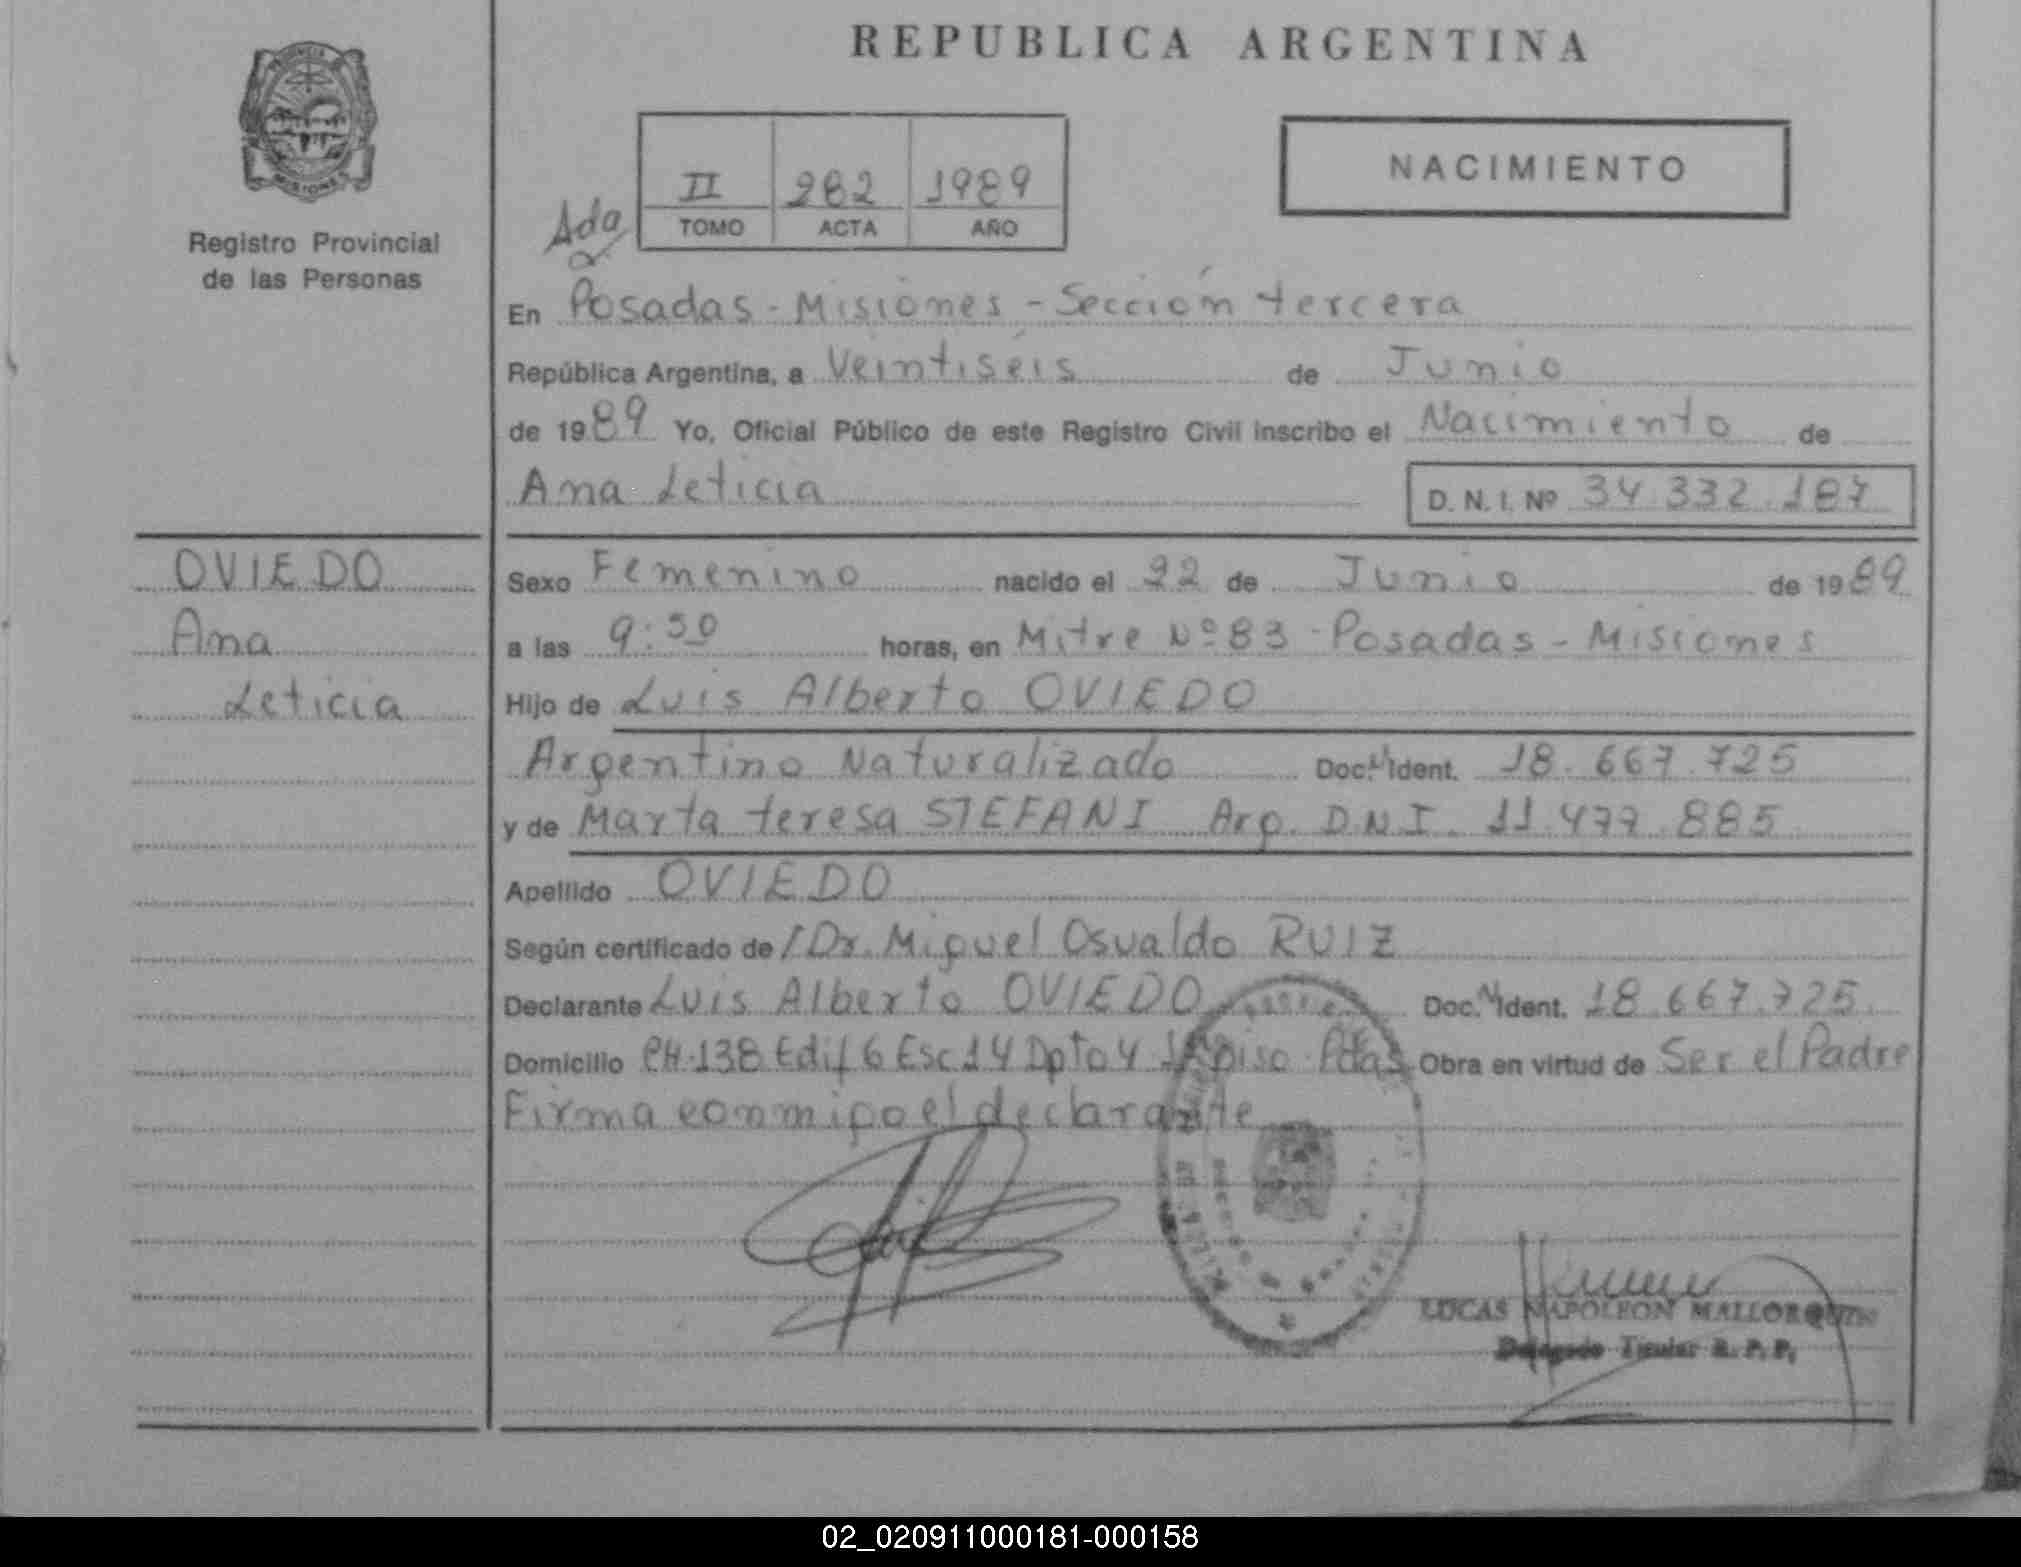 REPUBLICA ARGENTINA
PROVINCIA
MISIONES
Registro Provincial
de las Personas
II 282 1989
TOMO ACTA AÑO
NACIMIENTO
Ada
En Posadas - Misiones - Sección tercera
República Argentina, a Veintiséis de Junio
de 1989 Yo, Oficial Público de este Registro Civil inscribo el Nacimiento de
Ana Leticia D. N. I. Nº 34.332.187
OVIEDO
Ana
Leticia
Sexo Femenino nacido el 22 de Junio de 1989
a las 9:50 horas, en Mitre Nº 83 - Posadas - Misiones
Hijo de Luis Alberto OVIEDO
Argentino Naturalizado Doc. Ident. 18.667.725
y de Marta teresa STEFANI Arg. D.N.I. 11.477.885
Apellido OVIEDO
Según certificado de / Dr. Miguel Osvaldo RUIZ
Declarante Luis Alberto OVIEDO Doc. Ident. 18.667.725
Domicilio CH-138 Edif 6 Esc 14 Dpto 4 piso - Pdas Obra en virtud de Ser el Padre
Firma conmigo el declarante
LUCAS NAPOLEON MALLORQUIN
Delegado Titular R. P. P.
02_020911000181-000158